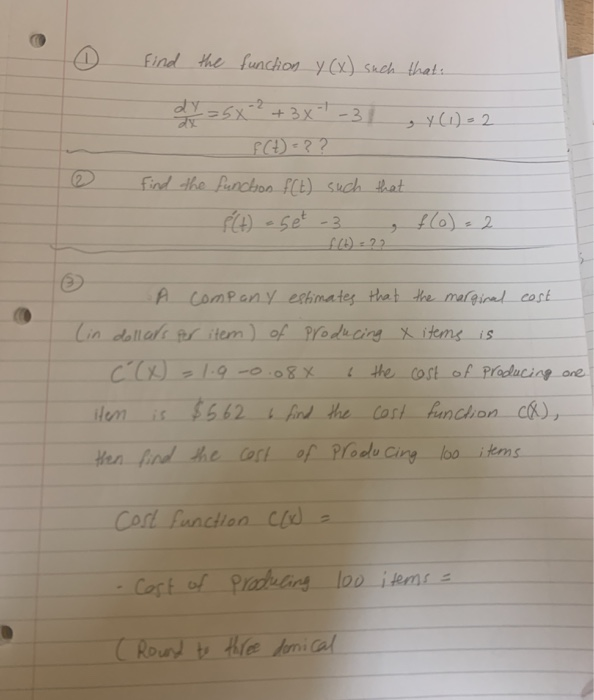 ① Find the function y(x) such that:
dy/dx = 5x⁻² + 3x⁻¹ - 3 , y(1) = 2
f(t) = ??
② Find the function f(t) such that
f'(t) = 5eᵗ - 3 , f(0) = 2
f(t) = ??
③ A company estimates that the marginal cost
(in dollars per item) of producing x items is
C'(x) = 1.9 - 0.08x & the cost of producing one
item is $562 & find the cost function c(x),
then find the cost of producing 100 items
Cost function C(x) =
- Cost of producing 100 items =
(Round to three